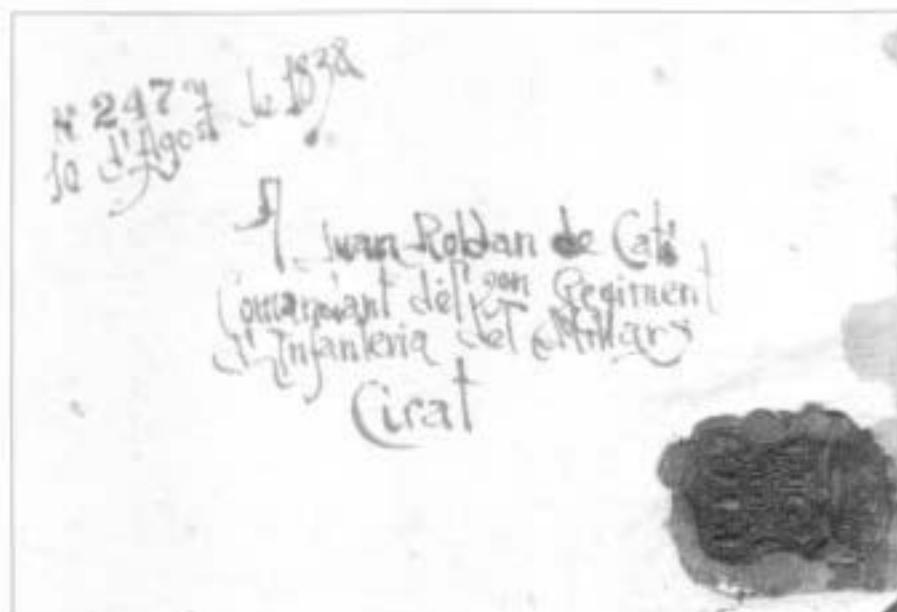 Nº 247
10 d'Agost de 1838
A Juan Roldan de Cati
Comandant del 2on Regiment
d'Infanteria del Millars
Cirat